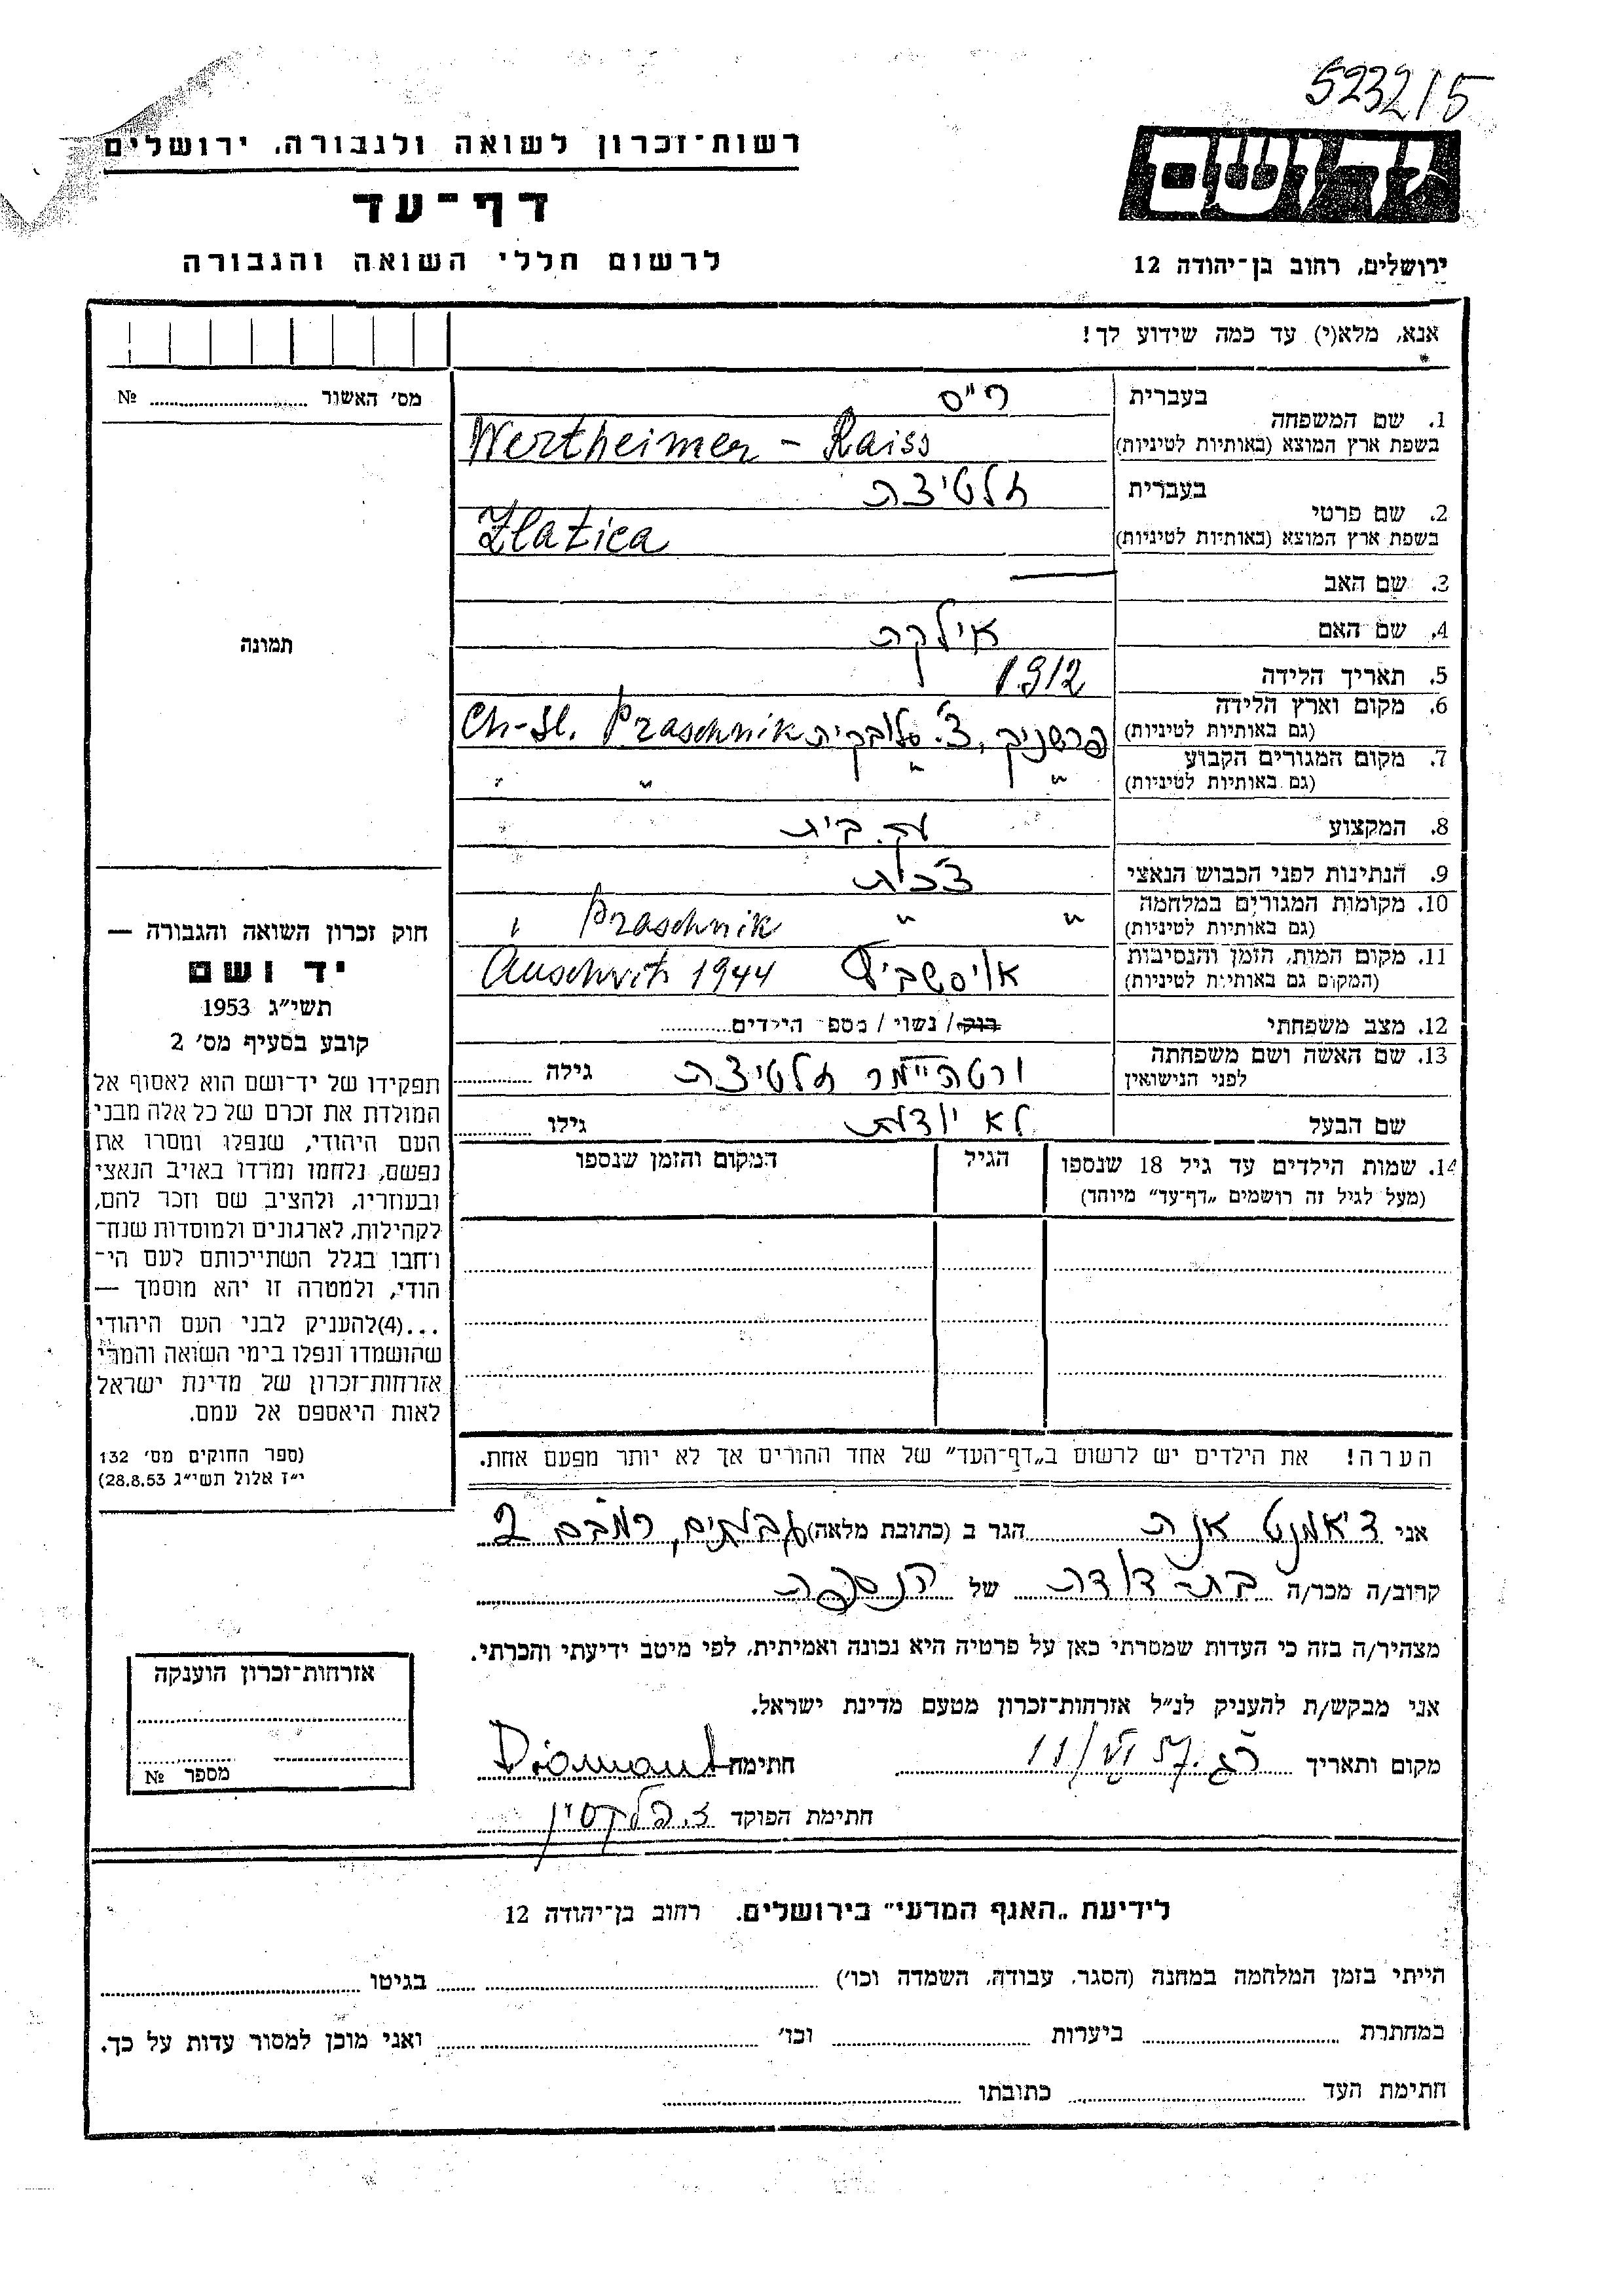 5232/5
רשות-זכרון לשואה ולגבורה, ירושלים
דף-עד
לרשום חללי השואה והגבורה
ידושם
ירושלים, רחוב בן-יהודה 12
אנא, מלא(י) עד כמה שידוע לך!
מס׳ האשור № 
תמונה
1. שם המשפחה בעברית רייס
בשפת ארץ המוצא (באותיות לטיניות) Wertheimer - Raiss
2. שם פרטי בעברית זלטיצה
בשפת ארץ המוצא (באותיות לטיניות) Zlatica
3. שם האב —
4. שם האם אילקה
5. תאריך הלידה 1912
6. מקום וארץ הלידה (גם באותיות לטיניות) פרשניק, צ׳. סלובקיה Praschnik Ch-Sl.
7. מקום המגורים הקבוע (גם באותיות לטיניות) " " " "
8. המקצוע עק. בית
9. הנתינות לפני הכבוש הנאצי צ׳כית
10. מקומות המגורים במלחמה (גם באותיות לטיניות) " " Praschnik
11. מקום המות, הזמן והנסיבות (המקום גם באותיות לטיניות) אוישביץ Auschvitz 1944
12. מצב משפחתי רוק / נשוי / מספר הילדים
13. שם האשה ושם משפחתה לפני הנישואין ורטהיימר זלטיצה גילה
שם הבעל לא יודעת גילו
14. שמות הילדים עד גיל 18 שנספו הגיל המקום והזמן שנספו
(מעל לגיל זה רושמים „דף-עד״ מיוחד)
הערה! את הילדים יש לרשום ב„דף-העד״ של אחד ההורים אך לא יותר מפעם אחת.
חוק זכרון השואה והגבורה —
יד ושם
תשי״ג 1953
קובע בסעיף מס׳ 2
תפקידו של יד-ושם הוא לאסוף אל
המולדת את זכרם של כל אלה מבני
העם היהודי, שנפלו ומסרו את
נפשם, נלחמו ומרדו באויב הנאצי
ובעוזריו, ולהציב שם וזכר להם,
לקהילות, לארגונים ולמוסדות שנח-
רחבו בגלל השתייכותם לעם הי-
הודי, ולמטרה זו יהא מוסמך —
...(4)להעניק לבני העם היהודי
שהושמדו ונפלו בימי השואה והמרי
אזרחות-זכרון של מדינת ישראל
לאות היאספם אל עמם.
(ספר החוקים מס׳ 132
י״ז אלול תשי״ג 28.8.53)
אני דיאמנט אנה הגר ב (כתובת מלאה) גבעתיים, רמבם 2
קרוב/ה מכר/ה בת-דודה של הנספה
מצהיר/ה בזה כי העדות שמסרתי כאן על פרטיה היא נכונה ואמיתית, לפי מיטב ידיעתי והכרתי.
אני מבקש/ת להעניק לנ״ל אזרחות-זכרון מטעם מדינת ישראל.
מקום ותאריך רג. 11/VI 57 חתימה Diamant
חתימת הפוקד
אזרחות-זכרון הוענקה
מספר №
לידיעת „האגף המדעי״ בירושלים. רחוב בן-יהודה 12
הייתי בזמן המלחמה במחנה (הסגר, עבודה, השמדה וכו׳) בגיטו
במחתרת ביערות וכו׳ ואני מוכן למסור עדות על כך.
חתימת העד כתובתו